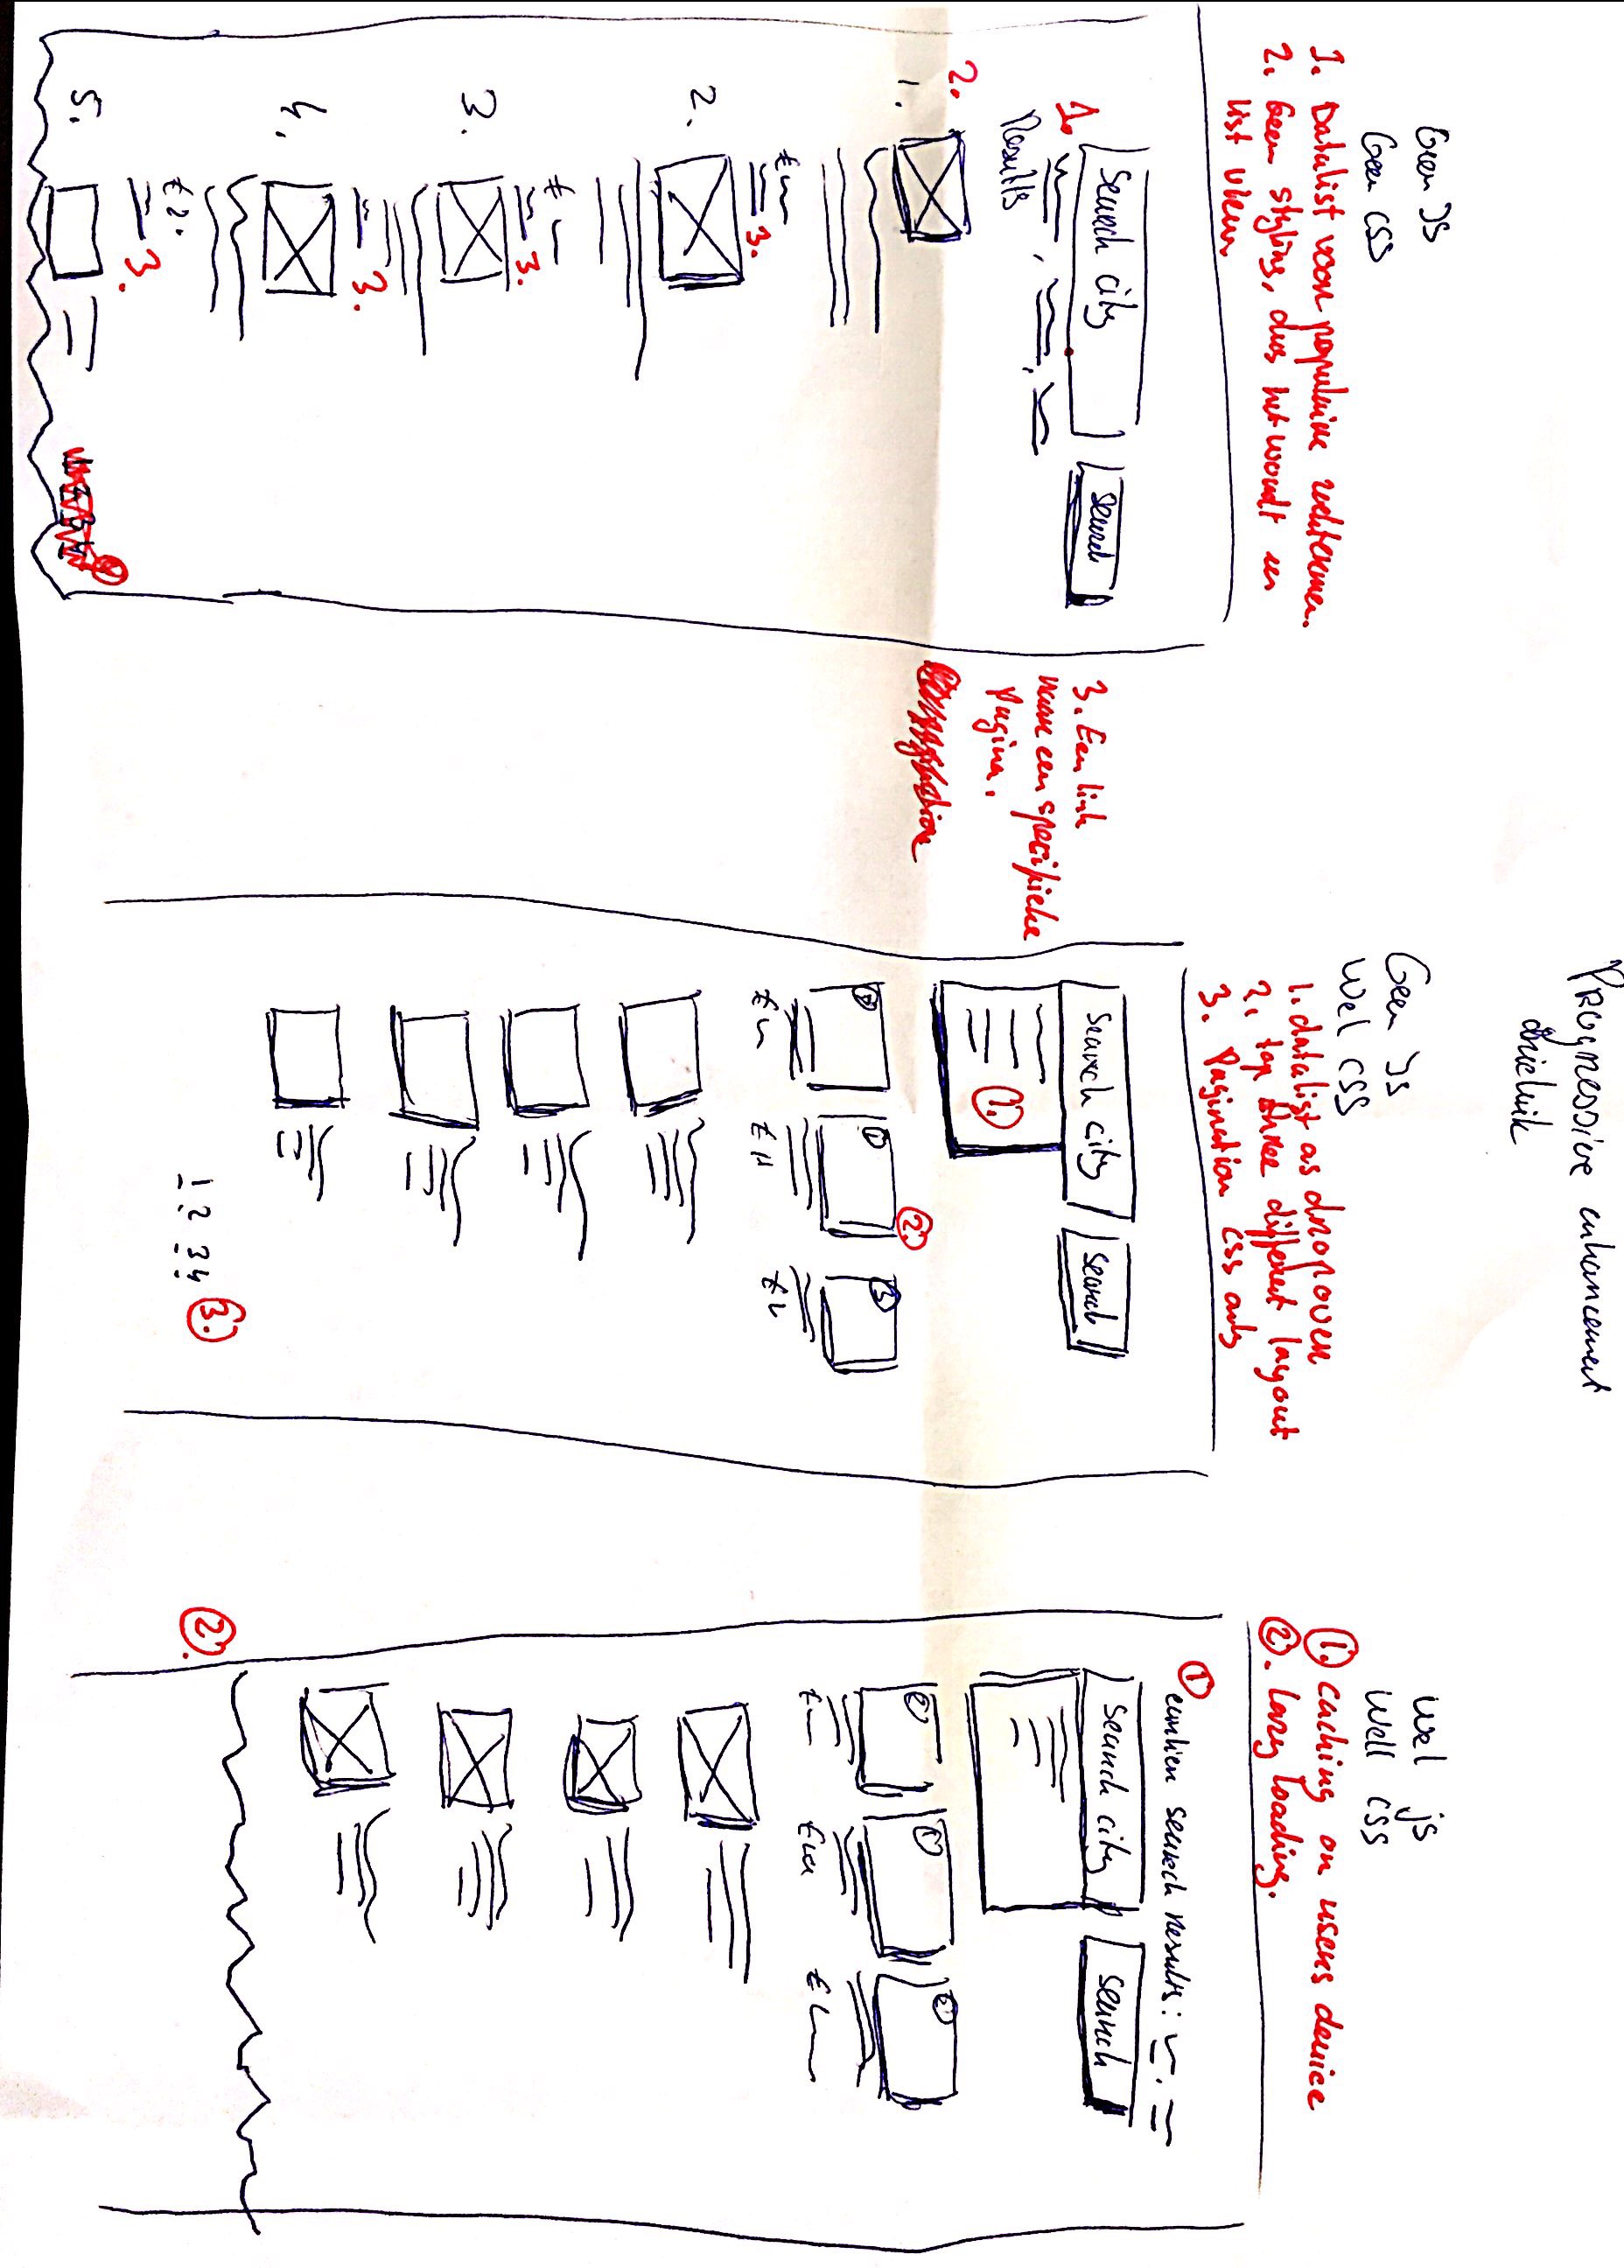 PROgressive enhancement
drieluik
Geen JS
Geen CSS
1. Datalist voor populaire zoektermen.
2. Geen styling, dus het wordt een
list view
Search city
Search
1.
Results
2.
1.
2.
3.
3.
3.
4.
3.
5.
3.
3. Een link
naar een specifieke
pagina.
Geen Js
Wel CSS
1. datalist as dropover
2. top three different layout
3. Pagination css only
Search city
Search
1.
2.
1
3
2.
1 2 3 4
3.
Wel js
Well CSS
1. caching on users device
2. lazy loading.
1 earlier search results:
Search city
Search
2.